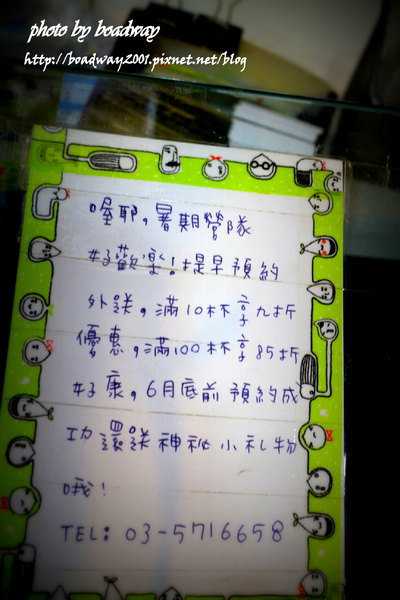 photo by boadway
http://boadway2001.pixnet.net/blog
喔耶，暑期營隊
好歡樂！提早預約
外送，滿10杯享九折
優惠，滿100杯享85折
好康，6月底前預約成
功還送神祕小礼物
哦！
TEL: 03-5716658